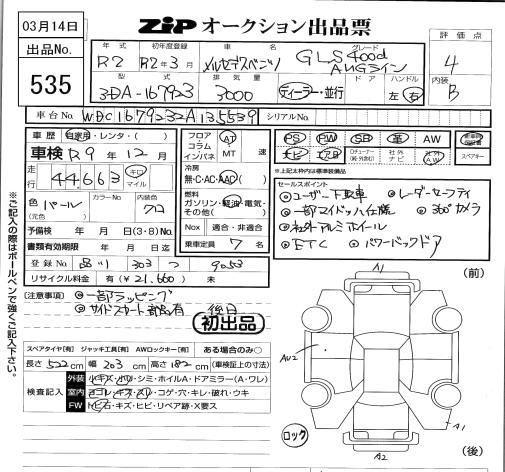 03月14日
ZIP オークション出品票
出品No.
535
年式 初年度登録 車名 グレード
R2 R2年3月 メルセデスベンツ GLS400d
AMGライン
型式 排気量 ドア ハンドル
3DA-167923 3000 ディーラー・並行 左 右
評価点
4
内装
B
車台No. WDC1679232A135539 シリアルNo.
車歴 自家用・レンタ・( )
車検 R9年12月
走行 44,663 キロ マイル
色 パール カラーNo 内装色 クロ
(元色)
予備検 年 月 日(3・8)No.
書類有効期限 年 月 日迄
登録No. 品川 303 つ 9053
リサイクル料金 有(¥21,660) 未
フロア コラム インパネ AT MT 速
冷房 無・AC・AAC( )
燃料 ガソリン・軽油・電気・その他( )
Nox 適合・非適合
乗車定員 7 名
PS PW SR 革 AW
ナビ エアB 社外ナビ 社外AW
スペアキー
*上記太枠は標準装備品
セールスポイント
◎ユーザー下取車 ◎レーダーセーフティ
◎一部マイバッハ仕様 ◎360°カメラ
◎社外アルミホイール
◎ETC ◎パワーバックドア
[注意事項] ◎一部ラッピング
◎サイドスカート部品有 後日
初出品
スペアタイヤ[有] ジャッキ工具[有] AWロックキー[有] ある場合のみ○
長さ 522cm 幅 203cm 高さ 182cm (車検証上の寸法)
検査記入
外装 小キズ・小凹・シミ・ホイルA・ドアミラー(A・ワレ)
室内 ヨゴレ・キズ・スレ・コゲ・穴・キレ・破れ・ウキ
FW トビ石・キズ・ヒビ・リペア跡・X要ス
※ご記入の際はボールペンで強くご記入下さい。
A1
(前)
AU2
ロック
A1
A2
(後)